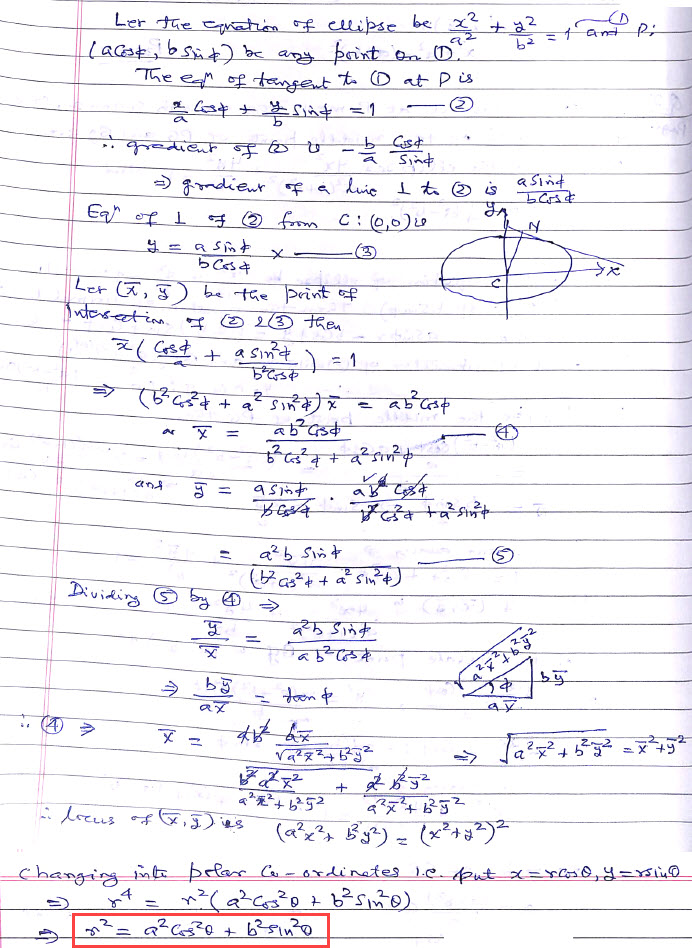 Let the equation of ellipse be x²/a² + y²/b² = 1 —① and P:
(a cosφ, b sinφ) be any point on ①.
The eqⁿ of tangent to ① at P is
x/a cosφ + y/b sinφ = 1 —②
∴ gradient of ② is - b/a cosφ/sinφ
⇒ gradient of a line ⊥ to ② is a sinφ/b cosφ
Eqⁿ of ⊥ of ② from C:(0,0) is
y = a sinφ/b cosφ x —③
y
N
C
x
Let (x̄, ȳ) be the point of
intersection of ② & ③ then
x̄ ( cosφ/a + a sin²φ/b² cosφ ) = 1
⇒ (b² cos²φ + a² sin²φ) x̄ = ab² cosφ
or x̄ = ab² cosφ / b² cos²φ + a² sin²φ —④
and ȳ = a sinφ/b cosφ · ab² cosφ / b² cos²φ + a² sin²φ
= a²b sinφ / (b² cos²φ + a² sin²φ) —⑤
Dividing ⑤ by ④ ⇒
ȳ/x̄ = a²b sinφ / ab² cosφ
⇒ bȳ/ax̄ = tanφ
√a²x̄² + b²ȳ²
φ
bȳ
ax̄
∴ ④ ⇒ x̄ = ab² ax̄/√a²x̄² + b²ȳ² / b²a²x̄²/a²x̄² + b²ȳ² + a²b²ȳ²/a²x̄² + b²ȳ² ⇒ √a²x̄² + b²ȳ² = x̄² + ȳ²
∴ locus of (x̄, ȳ) is (a²x² + b²y²) = (x² + y²)²
Changing into polar Co-ordinates i.e. put x = r cosθ, y = r sinθ
⇒ r⁴ = r² (a² cos²θ + b² sin²θ)
⇒ r² = a² cos²θ + b² sin²θ